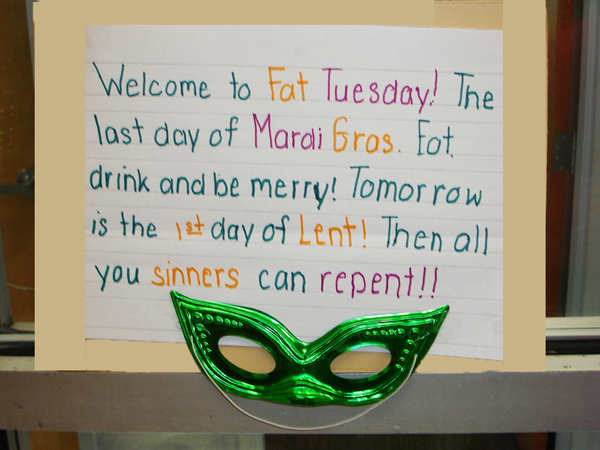 Welcome to Fat Tuesday! The
last day of Mardi Gras. Eat,
drink and be merry! Tomorrow
is the 1st day of Lent! Then all
you sinners can repent!!